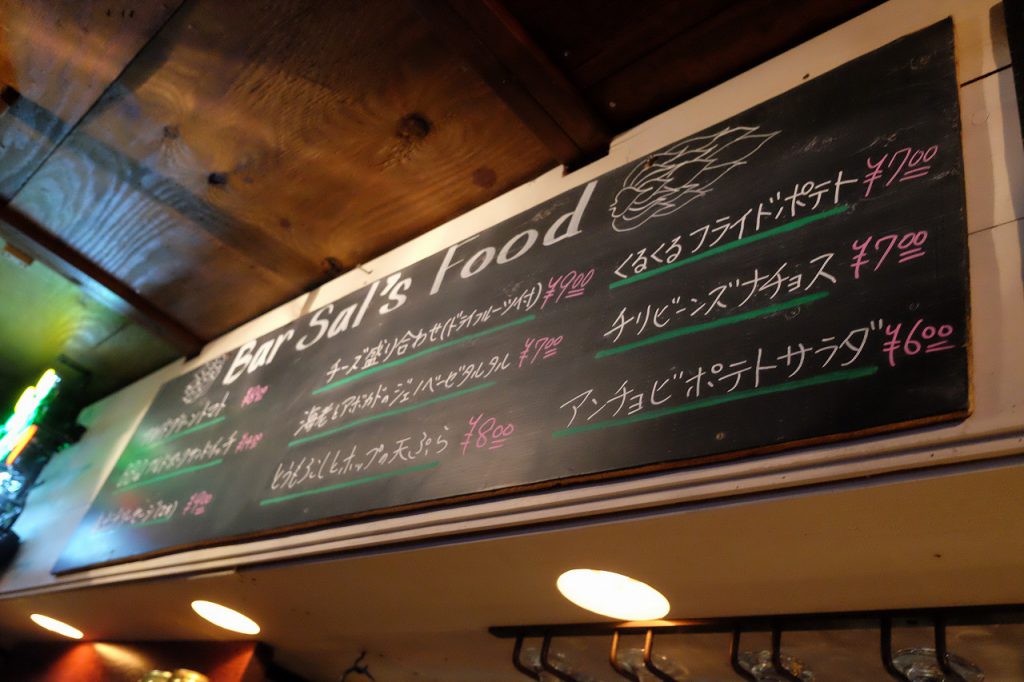 Bar Sal's Food
チーズ盛り合わせ(ドライフルーツ付) ¥900
海老とアボカドのジェノベーゼタルタル ¥700
とうもろこしとホップの天ぷら ¥800
くるくるフライドポテト ¥700
チリビーンズナチョス ¥700
アンチョビポテトサラダ ¥600